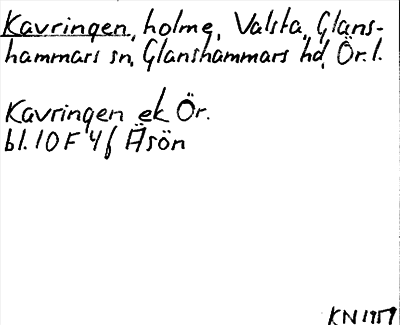 Kavringen, holme, Valsta, Glans-
hammars sn, Glanshammars hd, Ör. l.
Kavringen ek Ör.
bl. 10 F 4 f Äsön
KN 1959